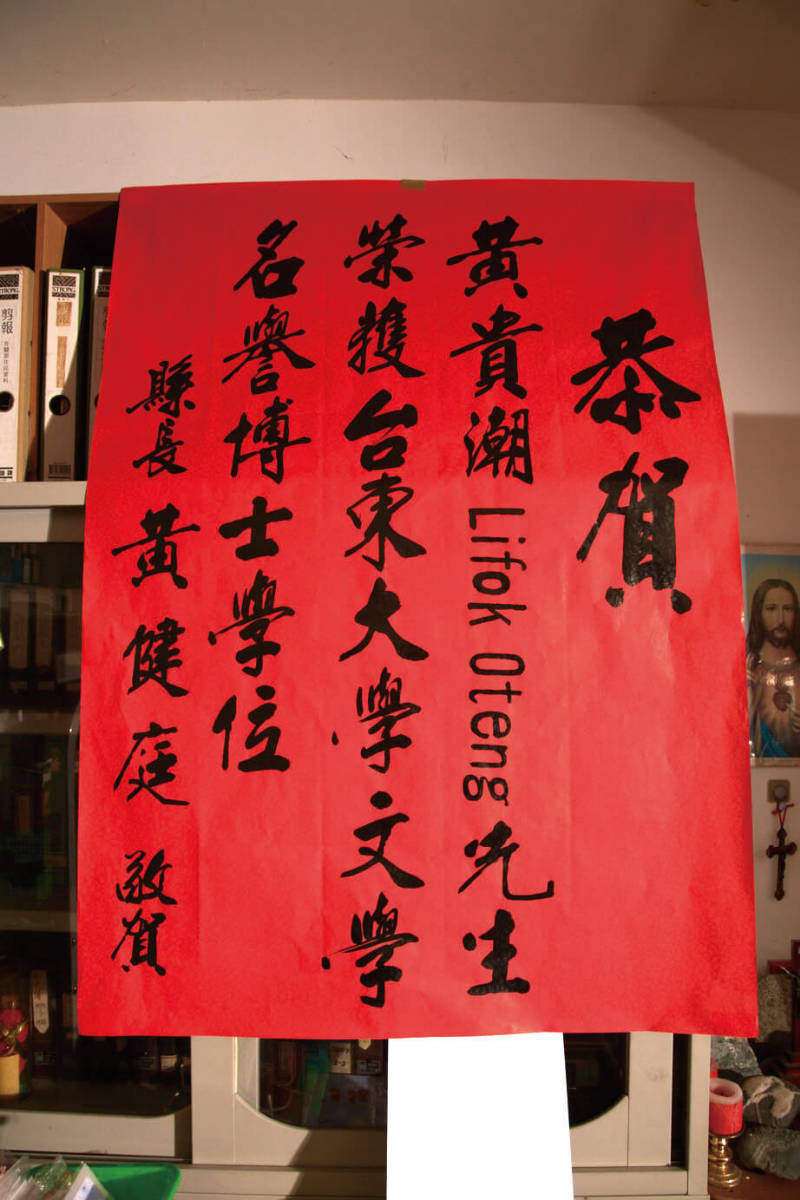 恭賀
黃貴潮 Lifok Oteng 先生
榮獲台東大學文學
名譽博士學位
縣長 黃健庭 敬賀
STRONG
剪報
STRONG